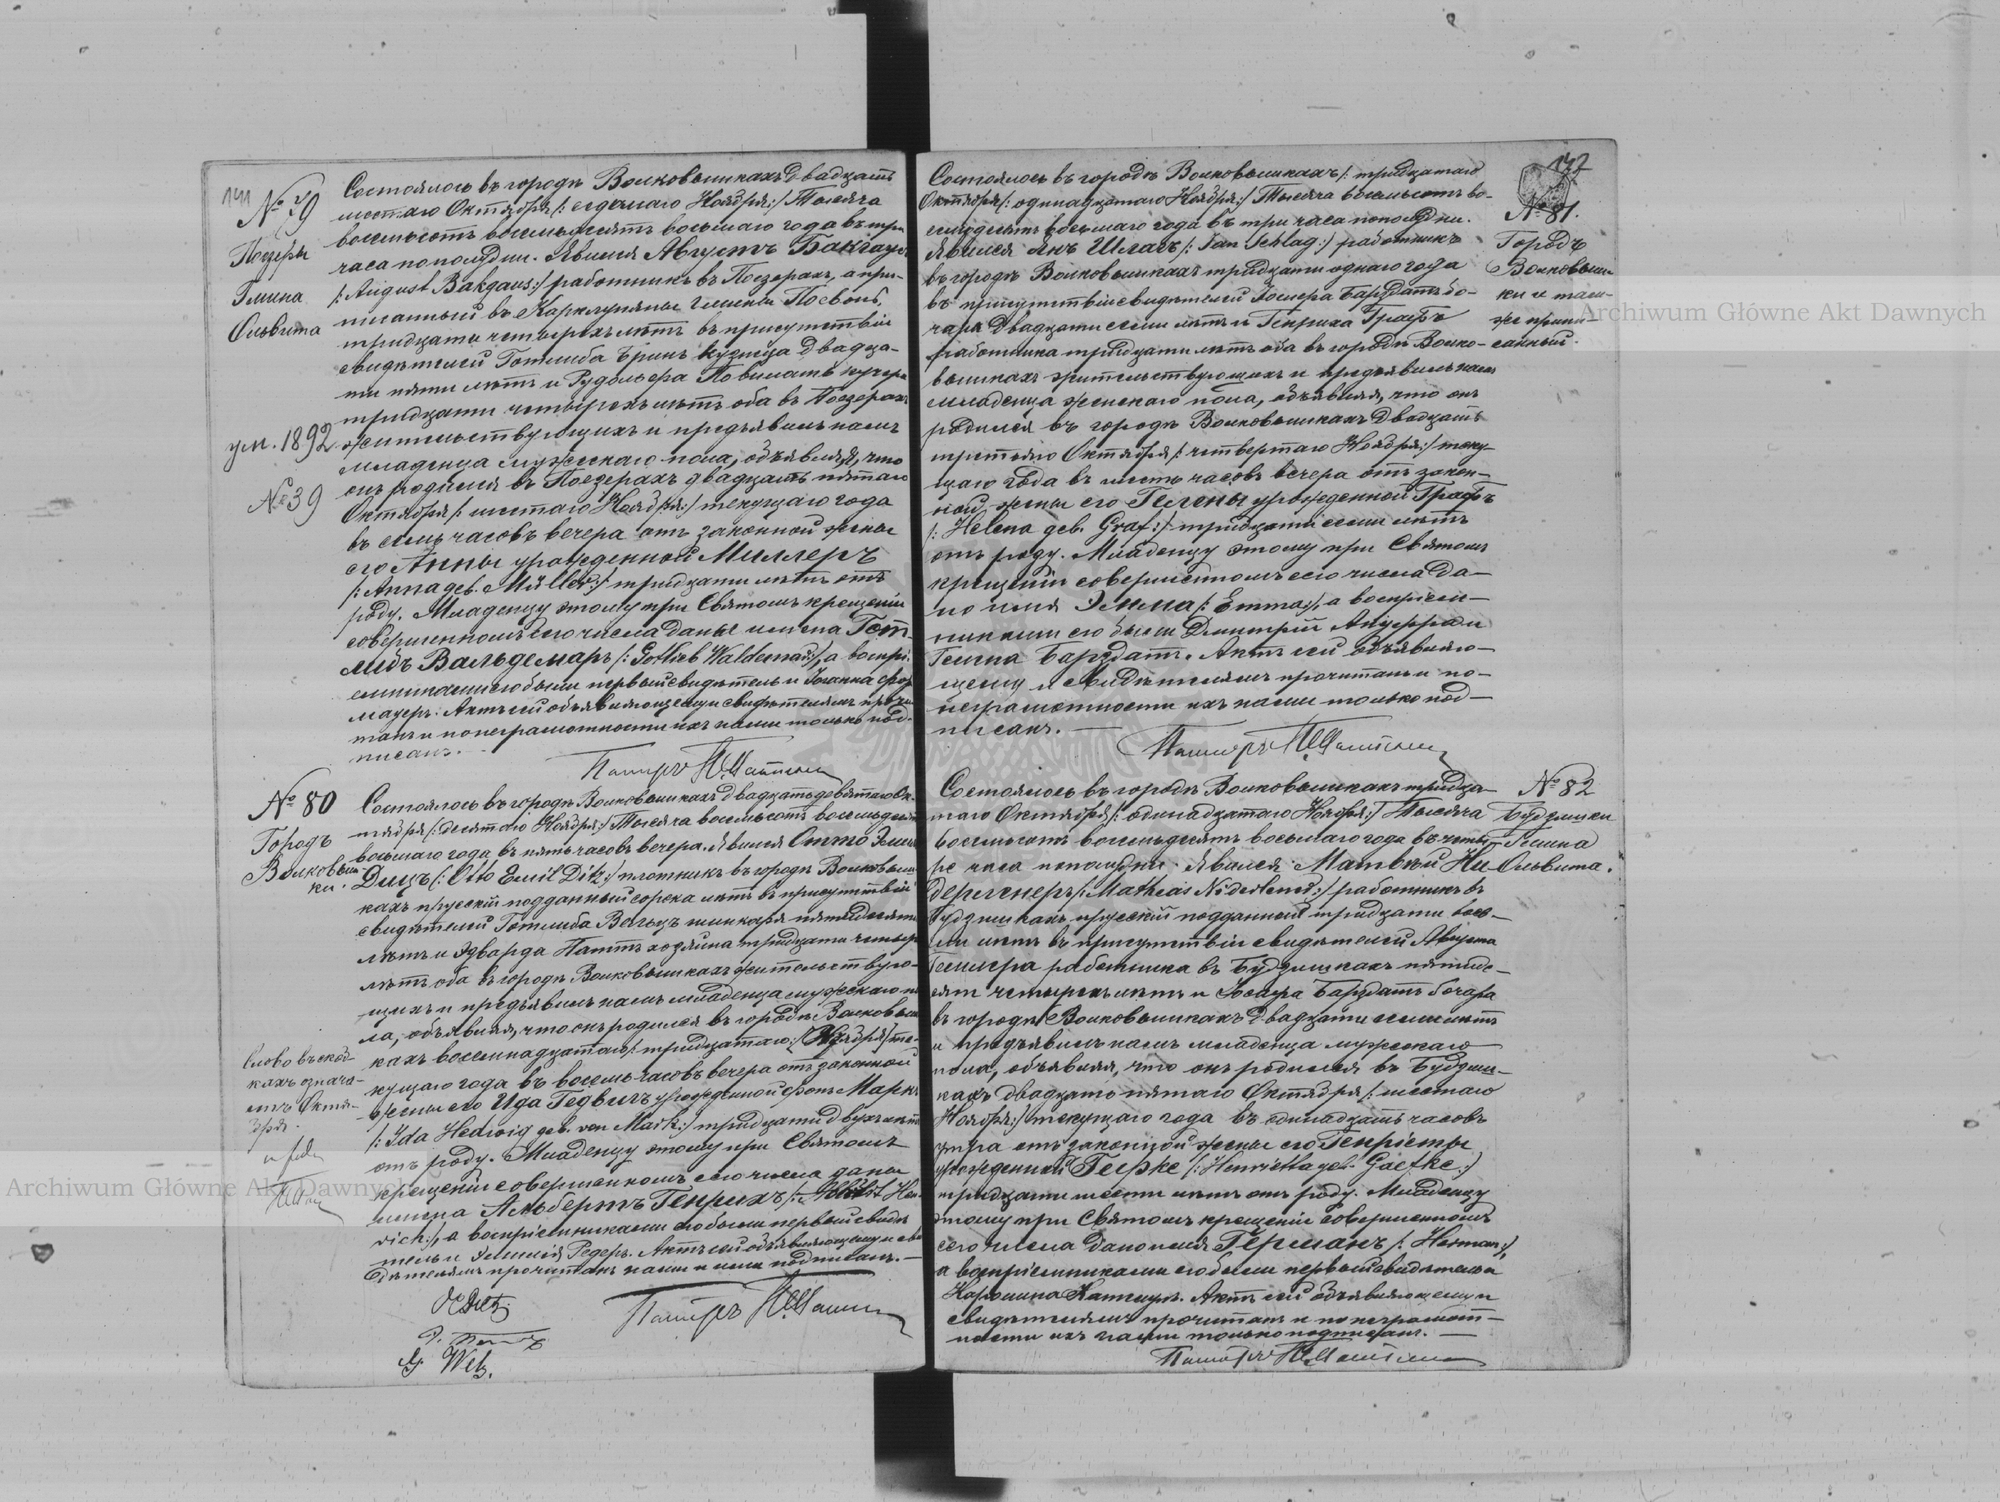 141
№ 79
Поезеры
Гмина
Ольвита
ум. 1892
№ 39
Состоялось въ городѣ Волковышкахъ двадцать
шостаго Октября /: седьмаго Ноября :/ Тысяча
восемьсотъ восемьдесятъ восьмаго года въ три
часа пополудни. Явился Августъ Бакгаусъ
/: August Bakgaus :/ работникъ въ Поезерахъ, а при-
писанный въ Карклупяны гмины Поевонь,
тридцати четырехъ лѣтъ въ присутствіи
свидѣтелей Готлиба Бринъ кузнеца двадца-
ти пяти лѣтъ и Рудольфа Повилатъ кучера
тридцати четырехъ лѣтъ оба въ Поезерахъ
жительствующихъ и предъявилъ намъ
младенца мужескаго пола, объявляя, что
онъ родился въ Поезерахъ двадцать пятаго
Октября /: шестаго Ноября :/ текущаго года
въ семь часовъ вечера отъ законной жены
его Анны урожденной Миллеръ
/: Anna geb. Müller :/ тридцати лѣтъ отъ
роду. Младенцу этому при Святомъ крещеніи
совершенномъ сего числа даны имена Гот-
либъ Вальдемаръ /: Gotlieb Waldemar :/, а воспрі-
емниками его были первый свидѣтель и Іоганна
маеръ. Актъ сей объявляющему и свидѣтелямъ прочи-
танъ и по неграмотности ихъ нами только под-
писанъ.
Пасторъ
№ 80
Городъ
Волковыш-
ки.
Слово въ скоб-
кахъ означа-
етъ Октя-
бря.
Состоялось въ городѣ Волковышкахъ двадцать девятаго Ок-
тября /: десятаго Ноября :/ Тысяча восемьсотъ восемьдесятъ
восьмаго года въ пять часовъ вечера. Явился Отто Эмиль
Дицъ /: Otto Emil Ditz :/ плотникъ въ городѣ Волковыш-
кахъ прусскій подданный сорока лѣтъ въ присутствіи
свидѣтелей Готлиба Вельцъ шинкаря пятидесяти
лѣтъ и Эдварда Наттъ хозяина тридцати четырехъ
лѣтъ оба въ городѣ Волковышкахъ жительствую-
щихъ и предъявилъ намъ младенца мужескаго по-
ла, объявляя, что онъ родился въ городѣ Волковыш-
кахъ восемнадцатаго /: тридцатаго :/ (Ноября) те-
кущаго года въ восемь часовъ вечера отъ законной
жены его Ида Гедвигъ урожденной фонъ Маркъ
/: Ida Hedwig geb. von Mark :/ тридцати двухъ лѣтъ
отъ роду. Младенцу этому при Святомъ
крещеніи совершенномъ сего числа даны
имена Альбертъ Генрихъ /: Albert Hen-
rich :/, а воспріемниками его были первый свидѣ-
тель и Эмилія Редеръ. Актъ сей объявляющему и сви-
дѣтелямъ прочитанъ нами и ими подписанъ.
Пасторъ
G Welz.
142
№ 81.
Городъ
Волковыш-
ки и там-
же припи-
санный.
Состоялось въ городѣ Волковышкахъ /: тридцатаго
Октября /: одинадцатаго Ноября :/ Тысяча восемьсотъ во-
семьдесятъ восьмаго года въ три часа пополудни.
Явился Янъ Шлагъ /: Jan Schlag :/ работникъ
въ городѣ Волковышкахъ тридцати одного года
въ присутствіи свидѣтелей Барздатъ бо-
чара двадцати семи лѣтъ и Генриха Графъ
работника тридцати лѣтъ оба въ городѣ Волко-
вышкахъ жительствующихъ и предъявилъ намъ
младенца женскаго пола, объявляя, что онъ
родился въ городѣ Волковышкахъ двадцать
третьяго Октября /: четвертаго Ноября :/ теку-
щаго года въ шесть часовъ вечера отъ закон-
ной жены его Гелены урожденной Графъ
/: Helena geb. Graf :/ тридцати семи лѣтъ
отъ роду. Младенцу этому при Святомъ
крещеніи совершенномъ сего числа да-
но имя Эмма /: Emma :/, а воспріем-
никами его были Дмитрій и
Гелина Барздатъ. Актъ сей объявляю-
щему и свидѣтелямъ прочитанъ и по-
неграмотности ихъ нами только под-
писанъ.
Пасторъ
№ 82
Будзишки
Гмина
Ольвита.
Состоялось въ городѣ Волковышкахъ тридца-
таго Октября /: одинадцатаго Ноября :/ Тысяча
восемьсотъ восемьдесятъ восьмаго года въ четы-
ре часа пополудни. Явился Матвѣй Ни-
дерленеръ /: Matheas Niderlener :/ работникъ въ
Будзишкахъ прусскій подданный тридцати вось-
ми лѣтъ въ присутствіи свидѣтелей Августа
Гешлера работника въ Будзишкахъ пятиде-
сяти четырехъ лѣтъ и Барздатъ бочара
въ городѣ Волковышкахъ двадцати семи лѣтъ
и предъявилъ намъ младенца мужескаго
пола, объявляя, что онъ родился въ Будзиш-
кахъ двадцать пятаго Октября /: шестаго
Ноября :/ текущаго года въ одинадцать часовъ
утра отъ законной жены его Генріеты
урожденной Гефке /: Henrietta geb. Gaefke :/
тридцати шести лѣтъ отъ роду. Младенцу
этому при Святомъ крещеніи совершенномъ
сего числа дано имя Германъ /: Herman :/,
а воспріемниками его были первый свидѣтель и
Каролина Капгиръ. Актъ сей объявляющему и
свидѣтелямъ прочитанъ и по неграмот-
ности ихъ нами только подписанъ.
Пасторъ
Archiwum Główne Akt Dawnych
Archiwum Główne Akt Dawnych